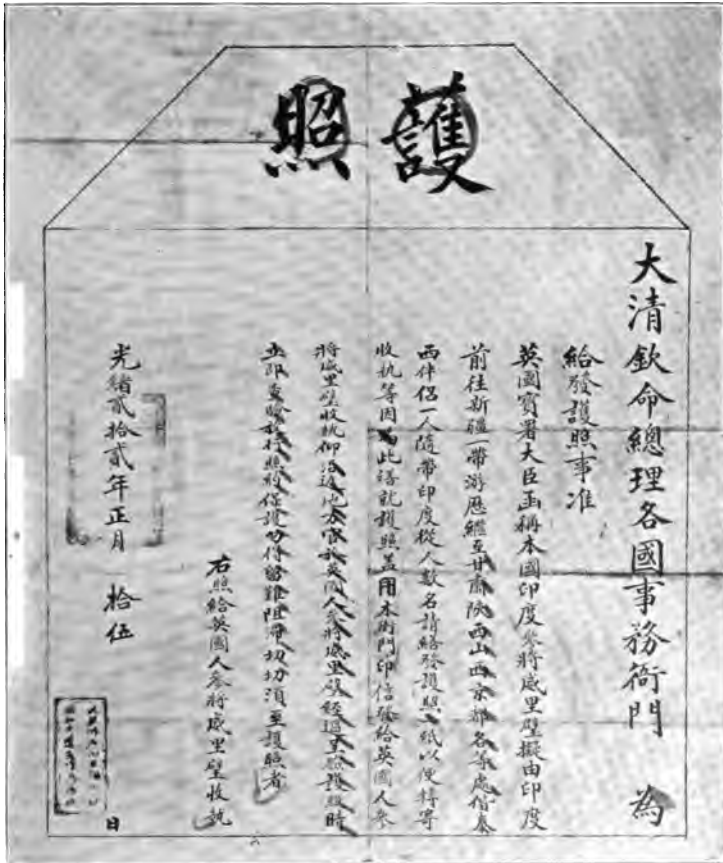 護照
大清欽命總理各國事務衙門 為
給發護照事准
英國寶署大臣函稱本國印度參將威里璧擬由印度
前往新疆一帶游歷繼至甘肅陝西山西京都各等處偕泰
西伴侶一人隨帶印度從人數名請繕發護照一紙以便轉寄
收執等因為此繕就護照蓋用本衙門印信發給英國人參
將威里璧收執仰沿途地方官於英國人參將威里璧經過呈驗護照時
立即查驗放行照約保護勿得留難阻滯切切須至護照者
右照給英國人參將威里璧收執
光緒貳拾貳年正月 拾伍
日